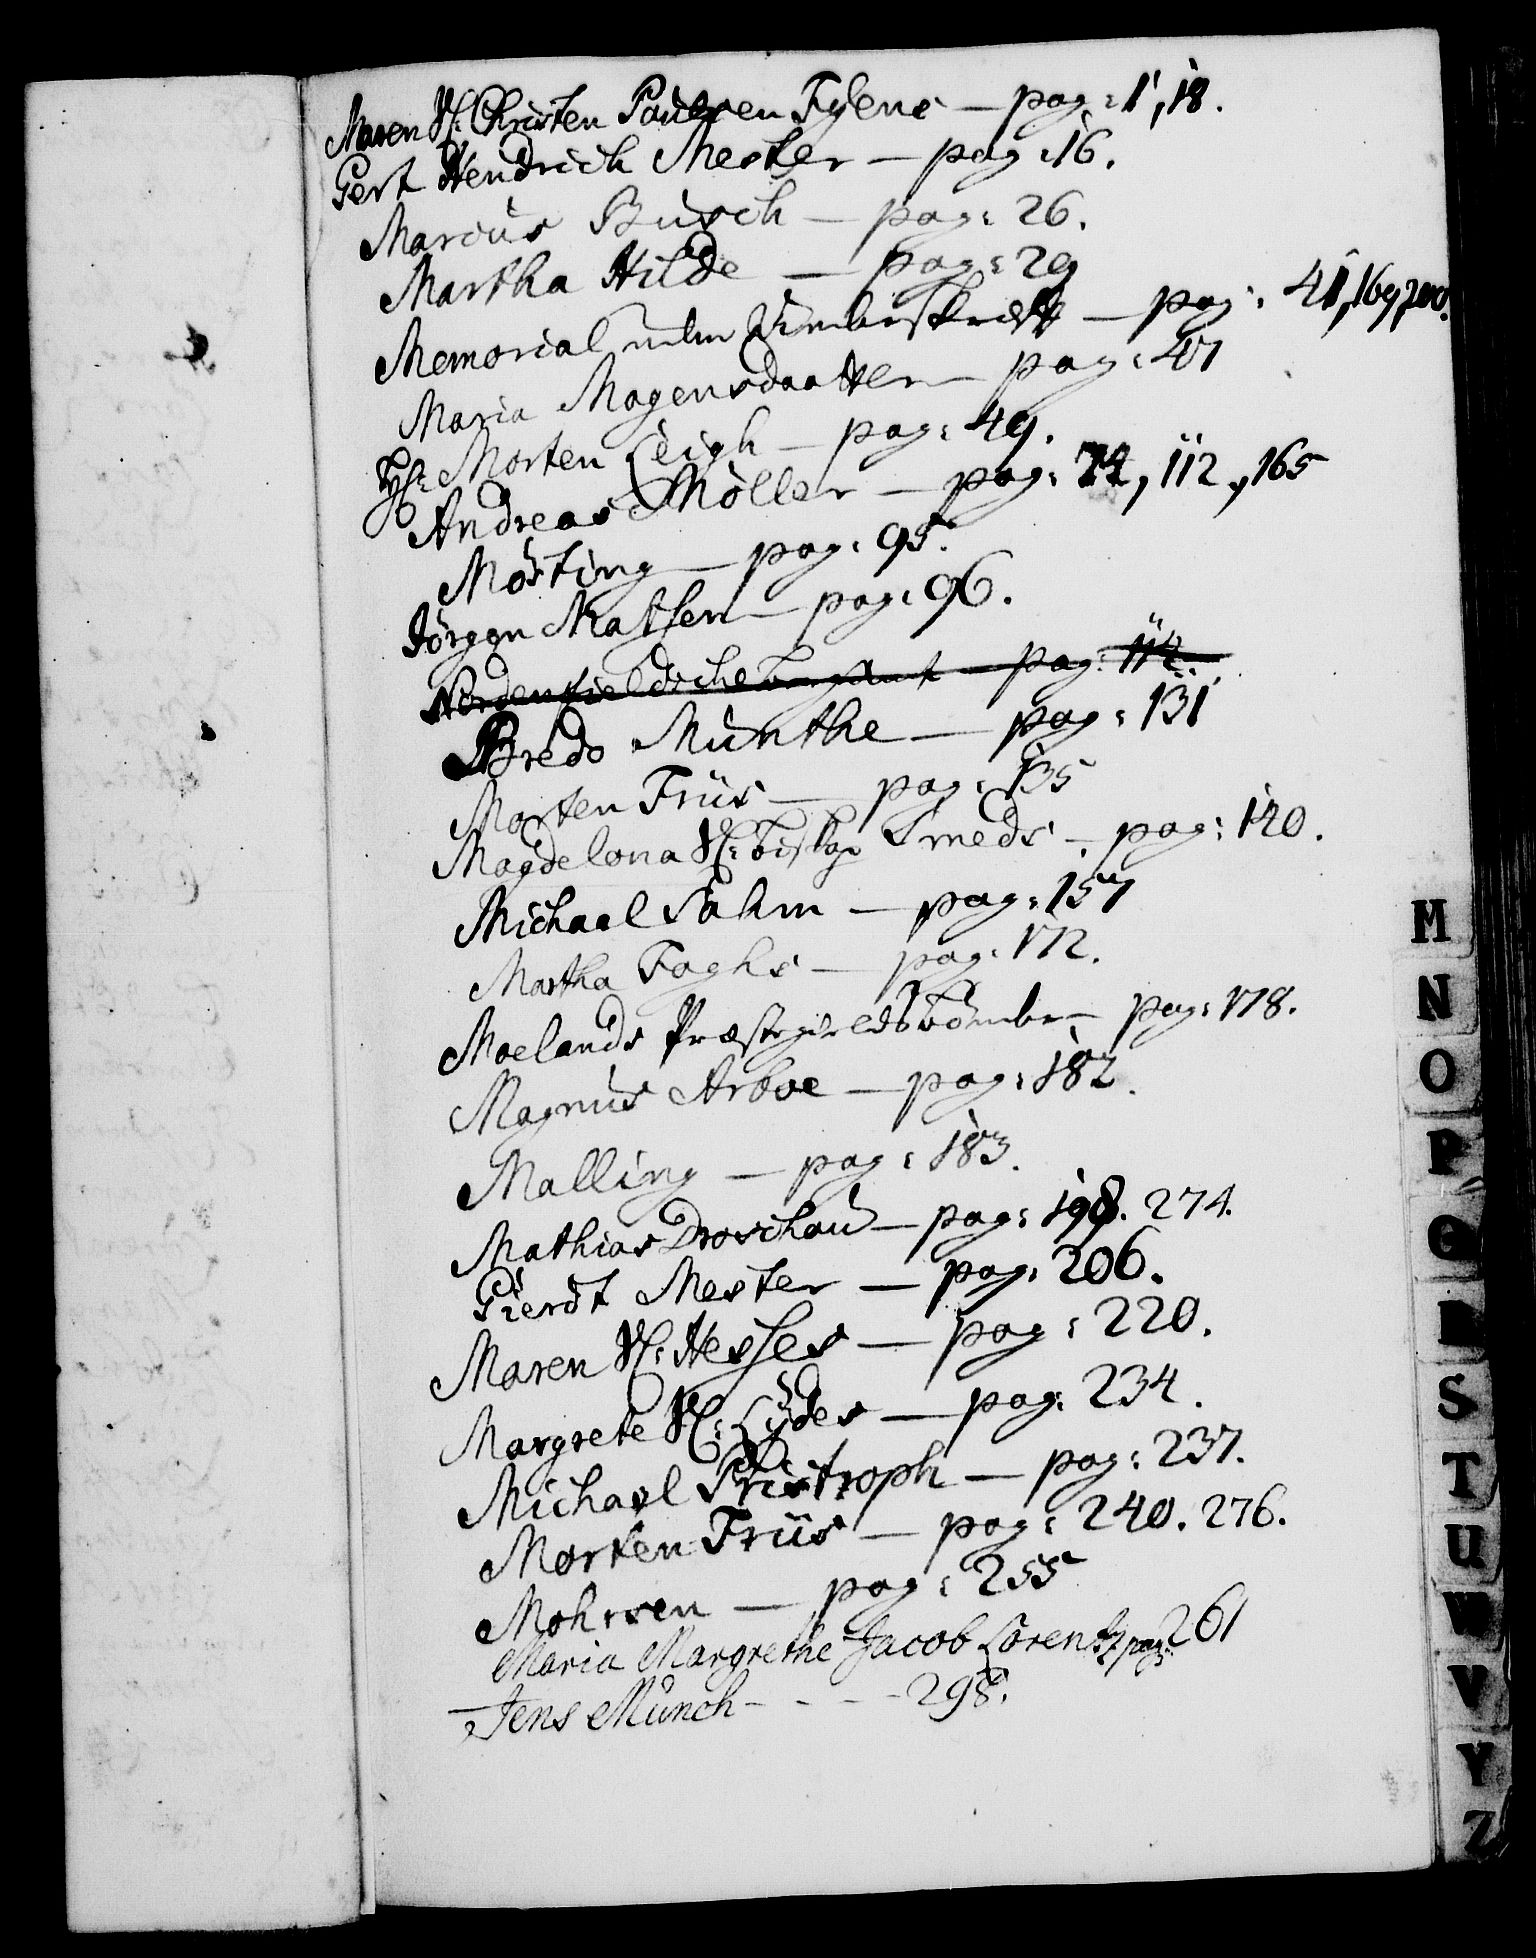 Maren Sl: Christen Paulsen Fylens — pag: 1, 18.
Gert Hendrich Mester — pag: 16.
Marcus Busch — pag: 26.
Martha Hilde — pag: 29
Memorial uden — pag: 41, 169, 200.
Maria Mogensdaatter — pag: 47
Morten Leigh — pag: 49.
Andreas Möller — pag: 74, 112, 165
Mösting — pag: 95.
Jörgen Matsen — pag: 96.
Nordenfieldsche — pag: 112.
Bredo Munthe — pag: 131
Morten Friis — pag: 135
Magdelona Sl: Biskop Smeds — pag: 140.
Michael Sahm — pag: 157
Martha Foghs — pag: 172.
Moelands Præstegields Bönder — pag: 178.
Magnus Arboe — pag: 182.
Malling — pag: 183.
Mathias Droschau — pag: 198. 274.
Gierdt Mester — pag: 206.
Maren Sl: Hesses — pag: 220.
Margrete Sl: Lyders — pag: 234.
Michael Pristroph — pag: 237.
Morten Friis — pag: 240. 276.
Mohrsen — pag: 255
Maria Margrethe Jacob Lorentz pag: 261
Jens Münch - - - - 298.
M
N
O
P
Q
R
S
T
U
W
V
Y
Z